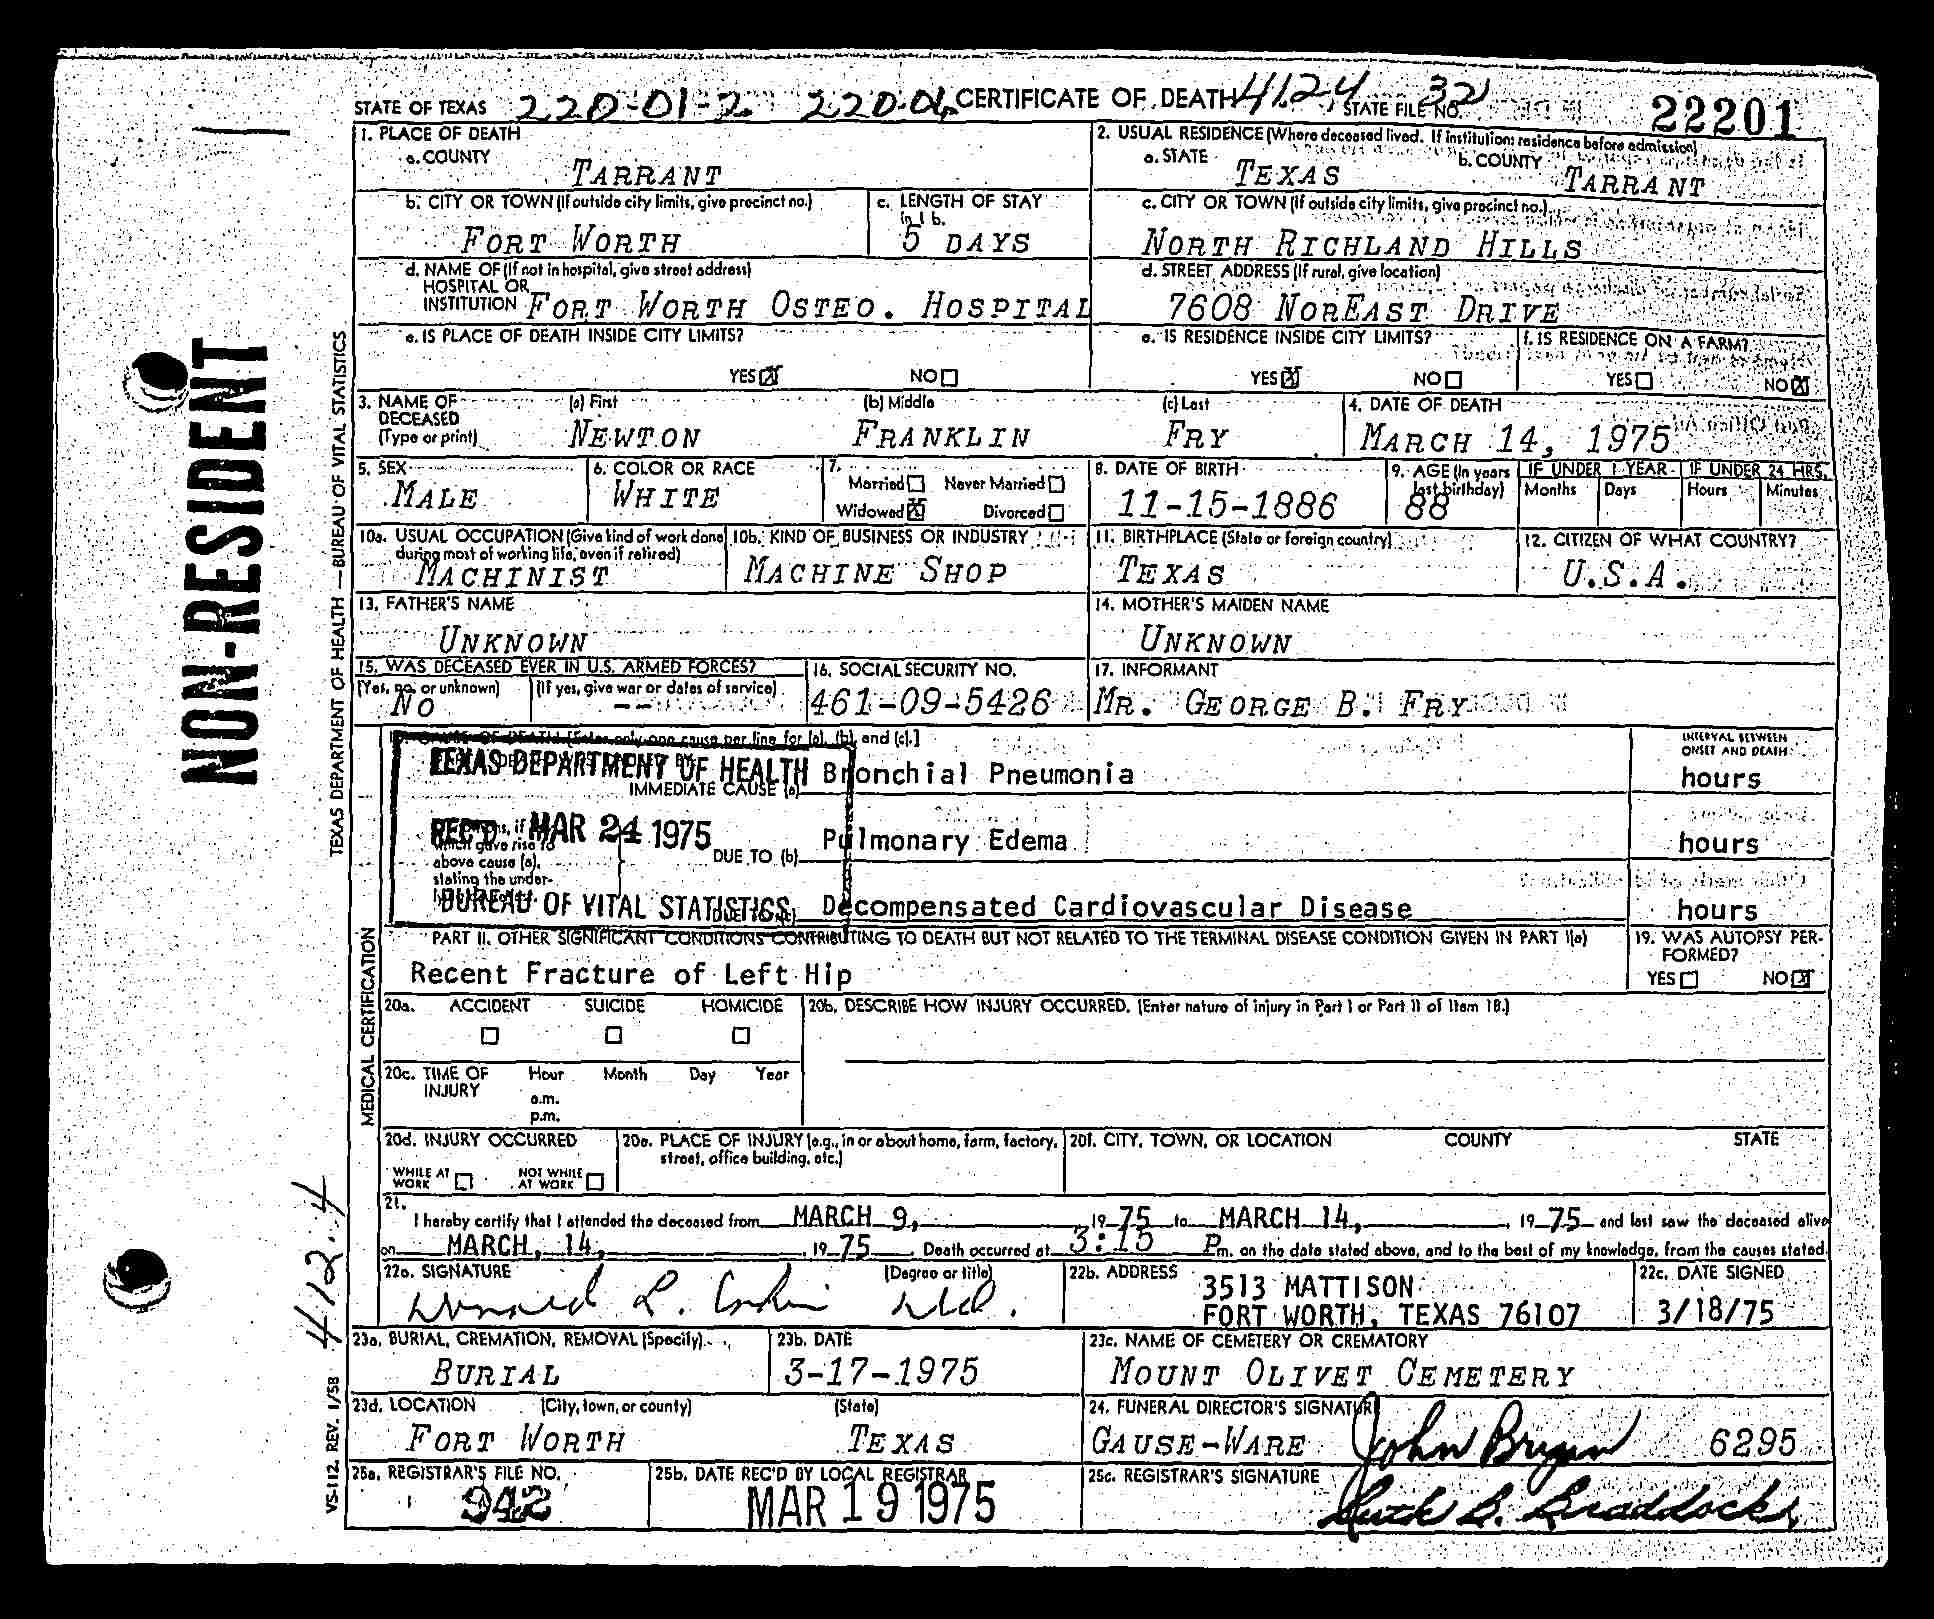 STATE OF TEXAS 220-01-2 220-04 CERTIFICATE OF DEATH 4124 32 STATE FILE NO. 22201
1. PLACE OF DEATH
a. COUNTY
TARRANT
2. USUAL RESIDENCE (Where deceased lived. If institution: residence before admission)
a. STATE TEXAS b. COUNTY TARRANT
b. CITY OR TOWN (If outside city limits, give precinct no.)
FORT WORTH
c. LENGTH OF STAY in 1 b.
5 DAYS
c. CITY OR TOWN (If outside city limits, give precinct no.)
NORTH RICHLAND HILLS
d. NAME OF (If not in hospital, give street address)
HOSPITAL OR
INSTITUTION FORT WORTH OSTEO. HOSPITAL
d. STREET ADDRESS (If rural, give location)
7608 NOREAST DRIVE
e. IS PLACE OF DEATH INSIDE CITY LIMITS?
YES NO
e. IS RESIDENCE INSIDE CITY LIMITS?
YES NO
f. IS RESIDENCE ON A FARM?
YES NO
3. NAME OF DECEASED (Type or print)
(a) First (b) Middle (c) Last
NEWTON FRANKLIN FRY
4. DATE OF DEATH
MARCH 14, 1975
5. SEX
MALE
6. COLOR OR RACE
WHITE
7.
Married Never Married
Widowed Divorced
8. DATE OF BIRTH
11-15-1886
9. AGE (In years last birthday)
88
IF UNDER 1 YEAR IF UNDER 24 HRS.
Months Days Hours Minutes
10a. USUAL OCCUPATION (Give kind of work done during most of working life, even if retired)
MACHINIST
10b. KIND OF BUSINESS OR INDUSTRY
MACHINE SHOP
11. BIRTHPLACE (State or foreign country)
TEXAS
12. CITIZEN OF WHAT COUNTRY?
U.S.A.
13. FATHER'S NAME
UNKNOWN
14. MOTHER'S MAIDEN NAME
UNKNOWN
15. WAS DECEASED EVER IN U.S. ARMED FORCES?
(Yes, no, or unknown) (If yes, give war or dates of service)
NO --
16. SOCIAL SECURITY NO.
461-09-5426
17. INFORMANT
MR. GEORGE B. FRY
18. CAUSE OF DEATH [Enter only one cause per line for (a), (b), and (c).]
INTERVAL BETWEEN
ONSET AND DEATH
TEXAS DEPARTMENT OF HEALTH
IMMEDIATE CAUSE (a) Bronchial Pneumonia hours
REC'D MAR 24 1975
which gave rise to
above cause (a),
stating the under-
DUE TO (b) Pulmonary Edema hours
BUREAU OF VITAL STATISTICS
Decompensated Cardiovascular Disease hours
PART II. OTHER SIGNIFICANT CONDITIONS CONTRIBUTING TO DEATH BUT NOT RELATED TO THE TERMINAL DISEASE CONDITION GIVEN IN PART I(a)
Recent Fracture of Left Hip
19. WAS AUTOPSY PER-
FORMED?
YES NO
20a. ACCIDENT SUICIDE HOMICIDE
20b. DESCRIBE HOW INJURY OCCURRED. (Enter nature of injury in Part I or Part II of Item 18.)
20c. TIME OF INJURY
Hour Month Day Year
a.m.
p.m.
20d. INJURY OCCURRED
WHILE AT WORK NOT WHILE AT WORK
20e. PLACE OF INJURY (e.g., in or about home, farm, factory, street, office building, etc.)
20f. CITY, TOWN, OR LOCATION COUNTY STATE
21.
I hereby certify that I attended the deceased from MARCH 9, 19 75 to MARCH 14, 19 75 and last saw the deceased alive
on MARCH, 14, 19 75. Death occurred at 3:15 P m. on the date stated above, and to the best of my knowledge, from the causes stated.
22a. SIGNATURE (Degree or title)
22b. ADDRESS
3513 MATTISON
FORT WORTH, TEXAS 76107
22c. DATE SIGNED
3/18/75
23a. BURIAL, CREMATION, REMOVAL (Specify)
BURIAL
23b. DATE
3-17-1975
23c. NAME OF CEMETERY OR CREMATORY
MOUNT OLIVET CEMETERY
23d. LOCATION (City, town, or county) (State)
FORT WORTH TEXAS
24. FUNERAL DIRECTOR'S SIGNATURE
GAUSE-WARE John Bryan 6295
25a. REGISTRAR'S FILE NO.
942
25b. DATE REC'D BY LOCAL REGISTRAR
MAR 19 1975
25c. REGISTRAR'S SIGNATURE
Ruth B. Braddock
NON-RESIDENT
TEXAS DEPARTMENT OF HEALTH — BUREAU OF VITAL STATISTICS
MEDICAL CERTIFICATION
412.4
VS-112. REV. 1/58